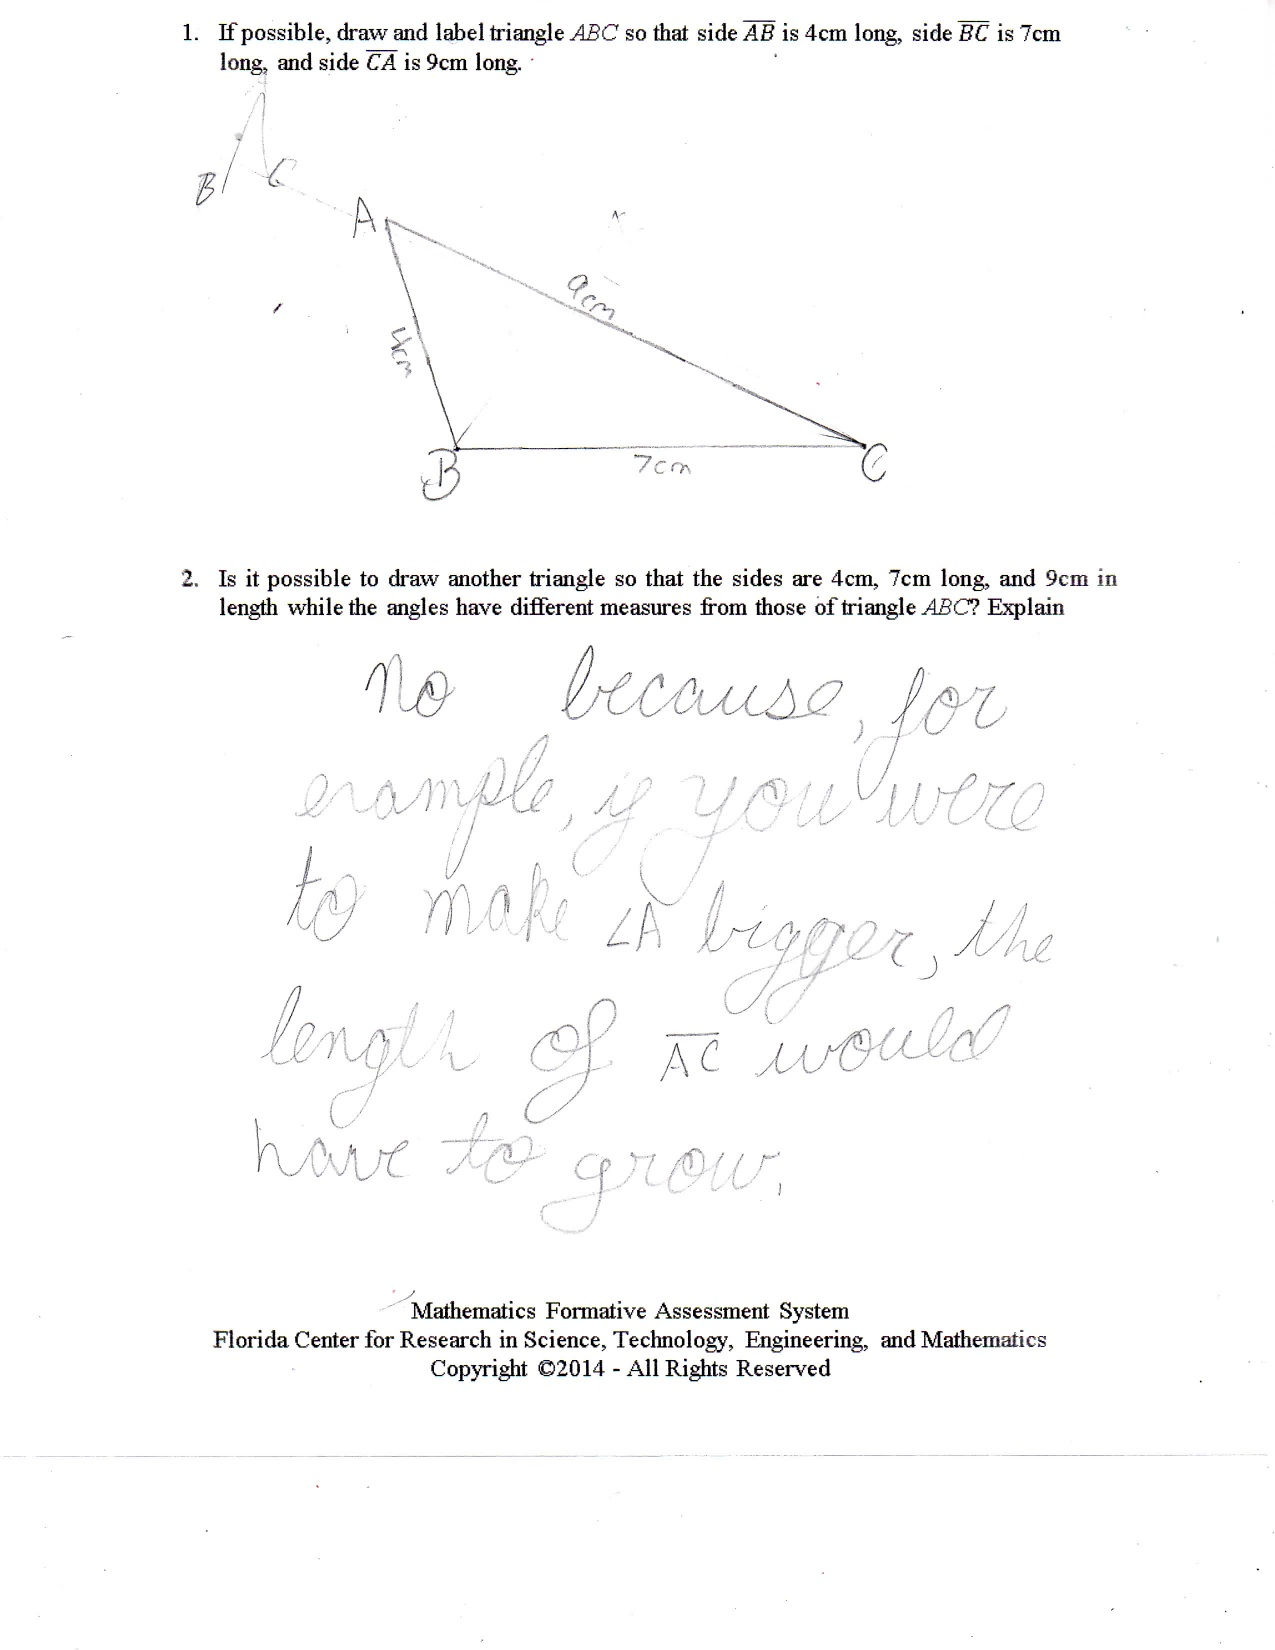 1. If possible, draw and label triangle ABC so that side AB is 4cm long, side BC is 7cm
long, and side CA is 9cm long.
B C
A
9cm
4cm
B 7cm C
2. Is it possible to draw another triangle so that the sides are 4cm, 7cm long, and 9cm in
length while the angles have different measures from those of triangle ABC? Explain
No because, for
example, if you were
to make ∠A bigger, the
length of AC would
have to grow.
Mathematics Formative Assessment System
Florida Center for Research in Science, Technology, Engineering, and Mathematics
Copyright ©2014 - All Rights Reserved